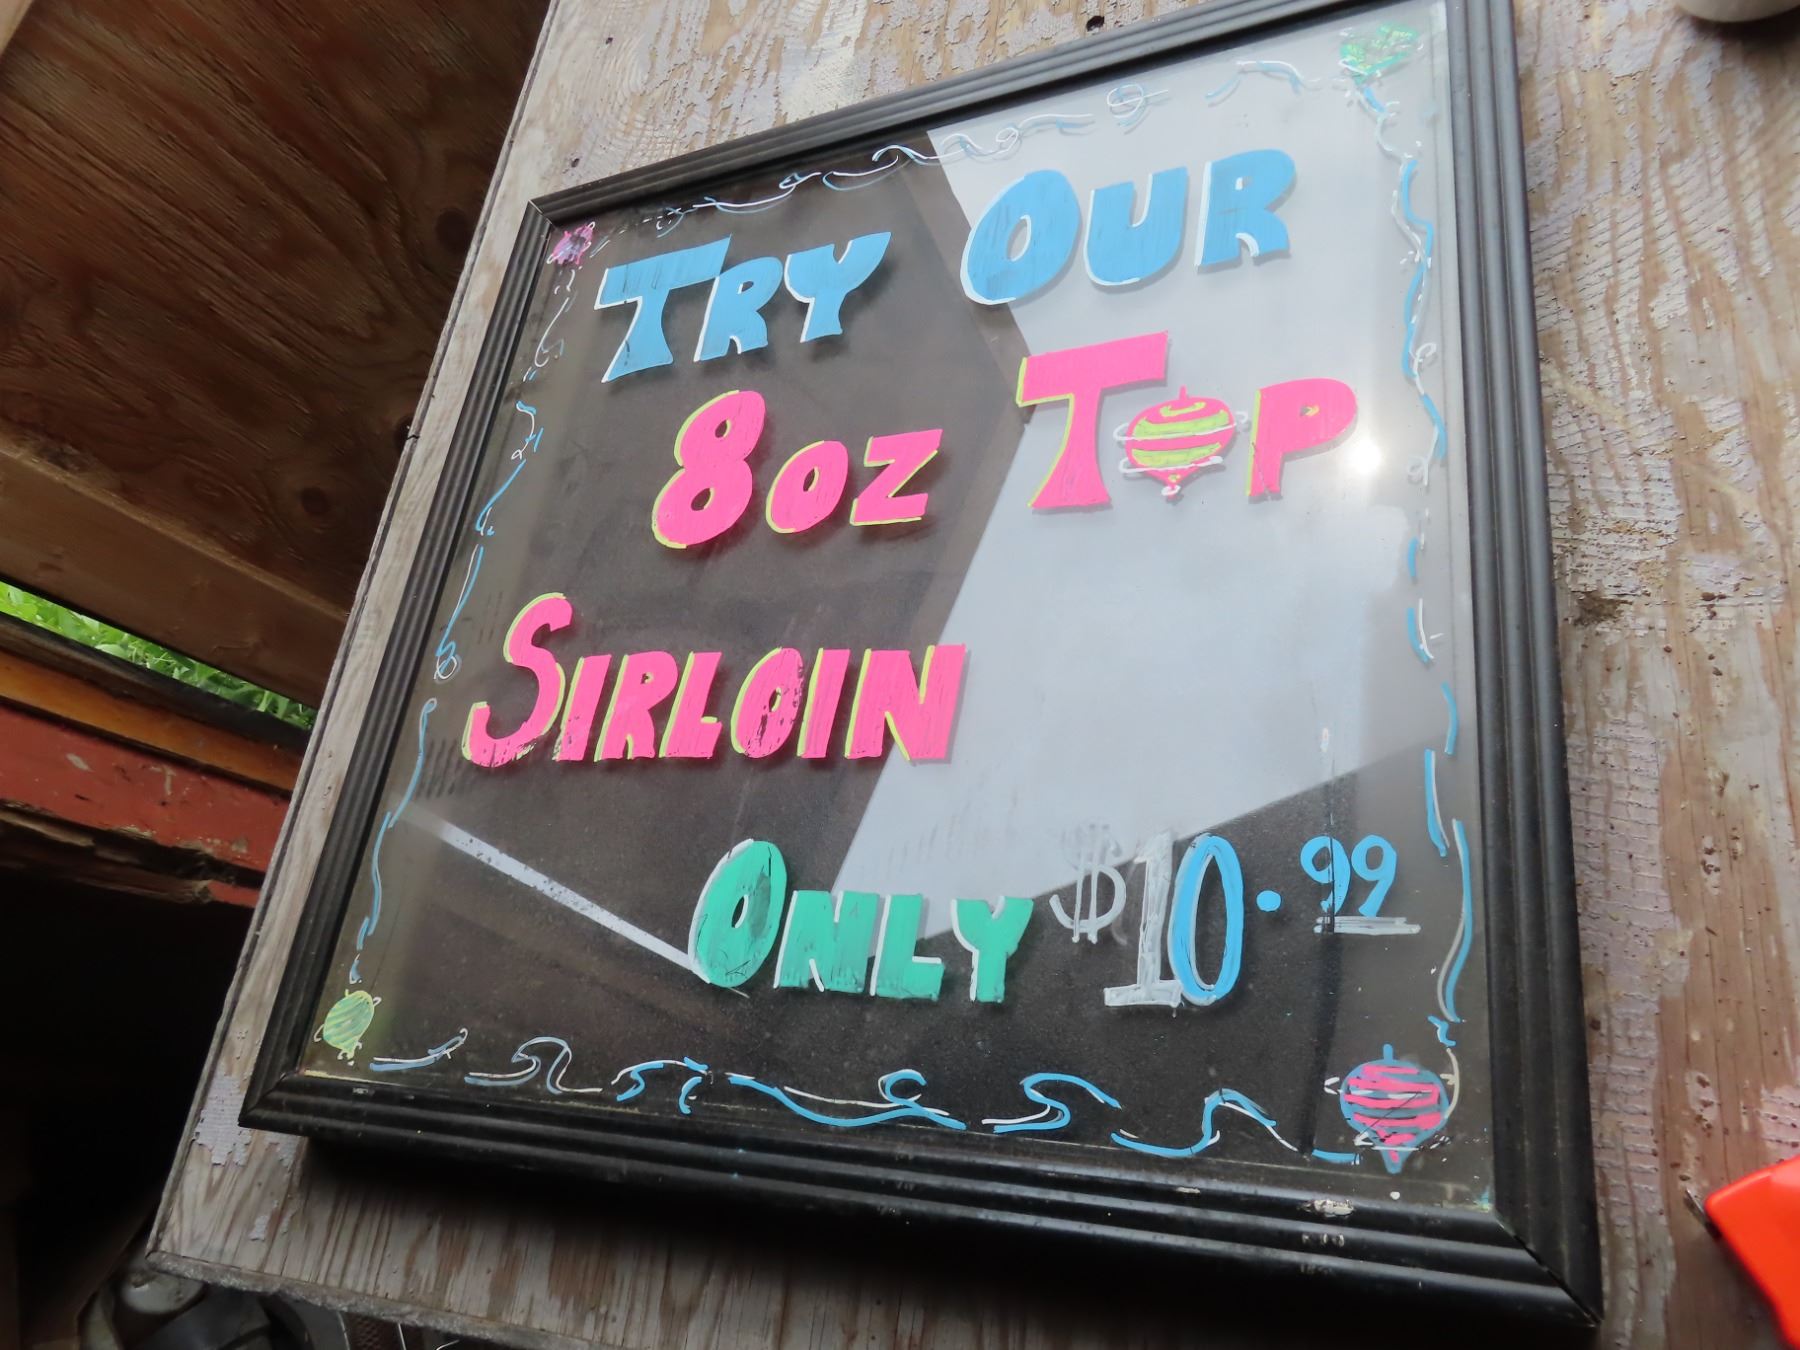 TRY OUR
8OZ TOP
SIRLOIN
ONLY $10.99